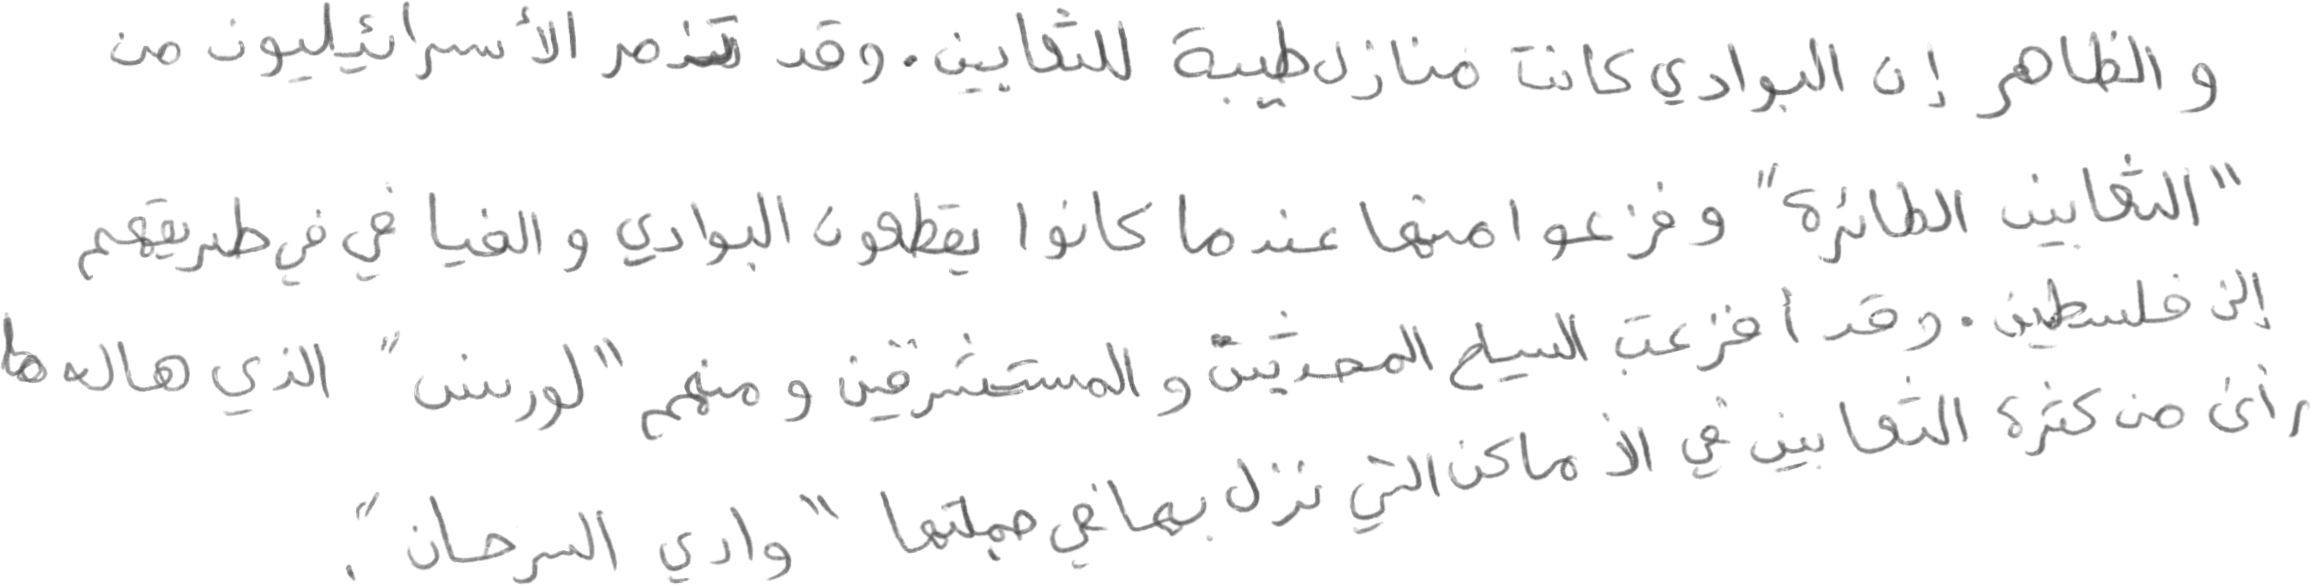 والظاهر إن البوادي كانت منازل طيبة للثعابين. وقد تذمر الأسرائيليون من
"الثعابين الطائرة" وفزعوا منها عندما كانوا يقطعون البوادي والفيافي في طريقهم
إلى فلسطين. وقد أفزعت السياح المحدثين والمستشرقين ومنهم "لورنس" الذي هاله ما
رأى من كثرة الثعابين في الأماكن التي نزل بها في جملتها "وادي السرحان".